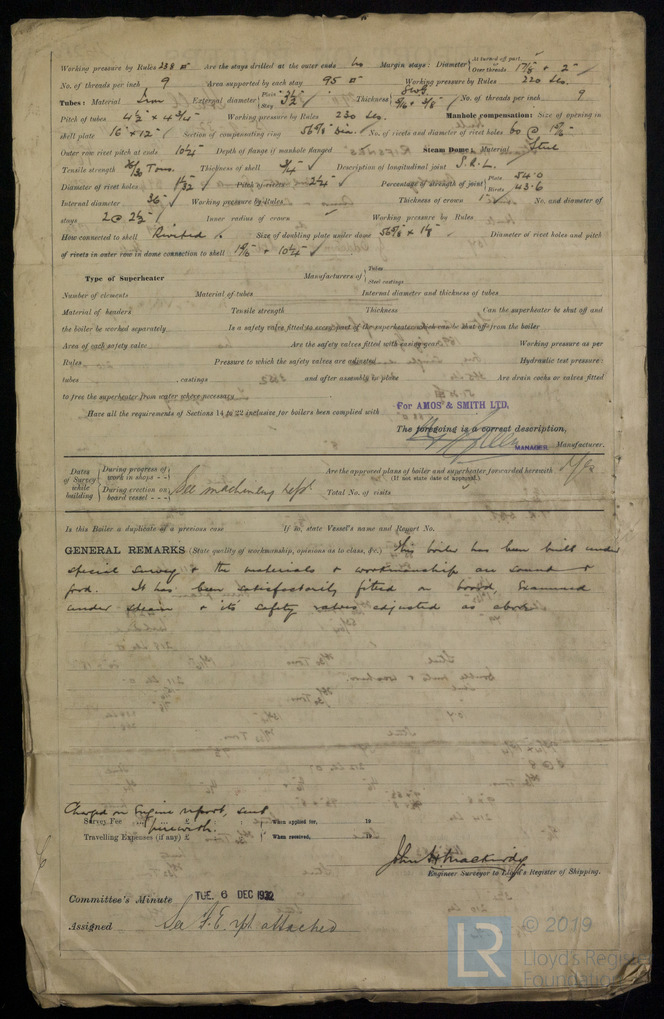 Working pressure by Rules 238 Are the stays drilled at the outer ends No Margin stays: Diameter { At turned off part, or Over threads 1 7/8" + 2"
No. of threads per inch 9 Area supported by each stay 95 Working pressure by Rules 220 lbs.
Tubes: Material Iron External diameter { Plain Stay 3 1/2" Thickness 5/16 + 3/8" No. of threads per inch 9
Pitch of tubes 4 1/2" x 4 3/4" Working pressure by Rules 230 lbs. Manhole compensation: Size of opening in
shell plate 16" x 12" Section of compensating ring No. of rivets and diameter of rivet holes 60 @
Outer row rivet pitch at ends 10 1/4 Depth of flange if manhole flanged Steam Dome: Material Steel
Tensile strength 26/30 Tons. Thickness of shell 3/4" Description of longitudinal joint S.R.L.
Diameter of rivet holes 1 1/32 Pitch of rivets 2 1/4 Percentage of strength of joint { Plate 54.0 Rivets 43.6
Internal diameter 36" Working pressure by Rules Thickness of crown 1" No. and diameter of
stays 2 @ 2 1/2" Inner radius of crown Working pressure by Rules
How connected to shell Riveted Size of doubling plate under dome Diameter of rivet holes and pitch
of rivets in outer row in dome connection to shell + 10 1/4"
Type of Superheater Manufacturers of { Tubes Steel castings
Number of elements Material of tubes Internal diameter and thickness of tubes
Material of headers Tensile strength Thickness Can the superheater be shut off and
the boiler be worked separately Is a safety valve fitted to every part of the superheater which can be shut off from the boiler
Area of each safety valve Are the safety valves fitted with easing gear Working pressure as per
Rules Pressure to which the safety valves are adjusted Hydraulic test pressure
tubes , castings and after assembly in place Are drain cocks or valves fitted
to free the superheater from water where necessary
Have all the requirements of Sections 14 to 22 inclusive for boilers been complied with
For AMOS & SMITH LTD,
The foregoing is a correct description,
MANAGER Manufacturer.
Dates of Survey while building { During progress of work in shops - - During erection on board vessel - - - See machinery rept Are the approved plans of boiler and superheater forwarded herewith Yes
(If not state date of approval.)
Total No. of visits
Is this Boiler a duplicate of a previous case If so, state Vessel's name and Report No.
GENERAL REMARKS (State quality of workmanship, opinions as to class, &c.) This boiler has been built under
special survey & the materials & workmanship are sound &
good. It has been satisfactorily fitted on board examined
under steam & its safety valves adjusted as above
Charged on Engine report, sent
herewith.
Survey Fee ... ... £ : : When applied for, 19
Travelling Expenses (if any) £ : : When received, 19
Engineer Surveyor to Lloyd's Register of Shipping.
Committee's Minute TUE. 6 DEC 1932
Assigned See F.E. rpt attached
LR © 2019
Lloyd's Register
Foundation